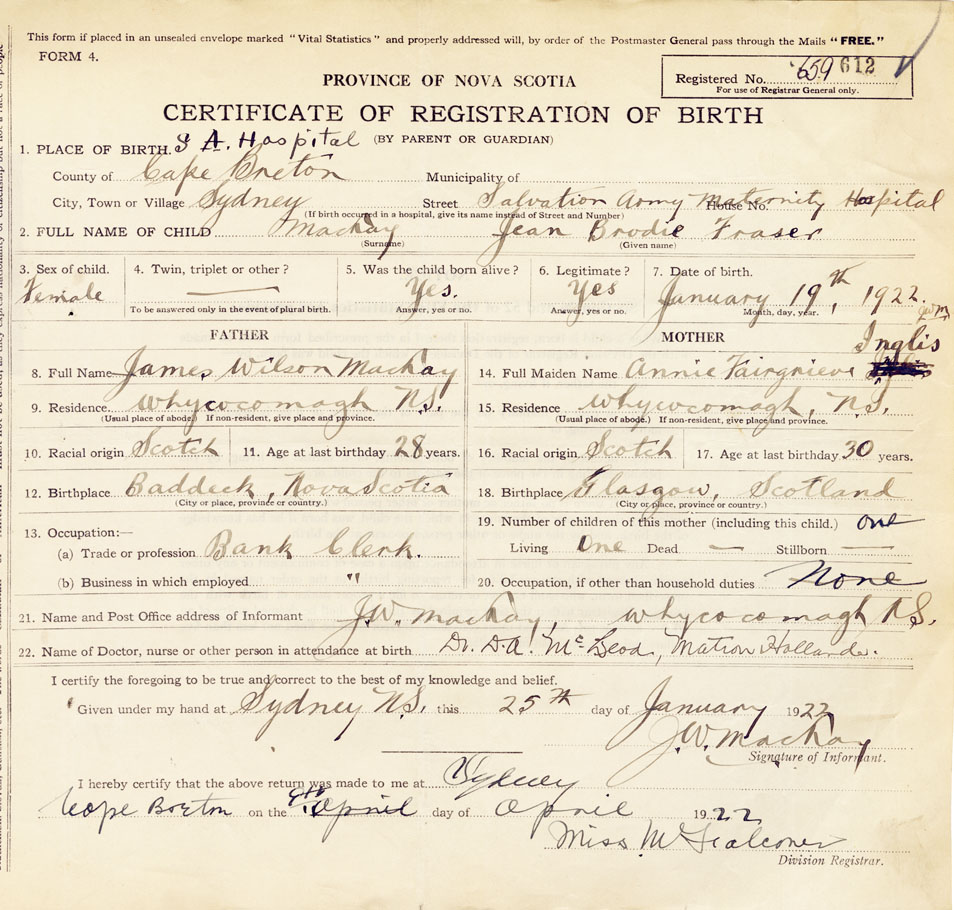 This form if placed in an unsealed envelope marked "Vital Statistics" and properly addressed will, by order of the Postmaster General pass through the Mails "FREE."
FORM 4.
PROVINCE OF NOVA SCOTIA
Registered No. 659 612
For use of Registrar General only.
CERTIFICATE OF REGISTRATION OF BIRTH
(BY PARENT OR GUARDIAN)
1. PLACE OF BIRTH. S A. Hospital
County of Cape Breton Municipality of
City, Town or Village Sydney Street Salvation Army Maternity Hospital House No.
(If birth occurred in a hospital, give its name instead of Street and Number)
2. FULL NAME OF CHILD Mackay Jean Brodie Fraser
(Surname) (Given name)
3. Sex of child. 4. Twin, triplet or other? 5. Was the child born alive? 6. Legitimate? 7. Date of birth.
Female — Yes. Yes January 19th, 1922.
To be answered only in the event of plural birth. Answer, yes or no. Answer, yes or no. Month, day, year.
JWM
FATHER MOTHER Inglis
8. Full Name James Wilson Mackay 14. Full Maiden Name Annie Fairgrieve
9. Residence Whycocomagh N.S. 15. Residence Whycocomagh, N.S.
(Usual place of abode.) If non-resident, give place and province. (Usual place of abode.) If non-resident, give place and province.
10. Racial origin Scotch 11. Age at last birthday 28 years. 16. Racial origin Scotch 17. Age at last birthday 30 years.
12. Birthplace Baddeck, Nova Scotia 18. Birthplace Glasgow, Scotland
(City or place, province or country.) (City or place, province or country.)
13. Occupation:— 19. Number of children of this mother (including this child.) one
(a) Trade or profession Bank Clerk. Living One Dead — Stillborn —
(b) Business in which employed " 20. Occupation, if other than household duties None
21. Name and Post Office address of Informant J.W. Mackay, Whycocomagh N.S.
22. Name of Doctor, nurse or other person in attendance at birth Dr. D.A. McLeod, Matron Hollande.
I certify the foregoing to be true and correct to the best of my knowledge and belief.
Given under my hand at Sydney N.S. this 25th day of January 1922
J.W. Mackay
Signature of Informant.
I hereby certify that the above return was made to me at Sydney
Cape Breton on the April day of April 1922
Miss M Falconer
Division Registrar.